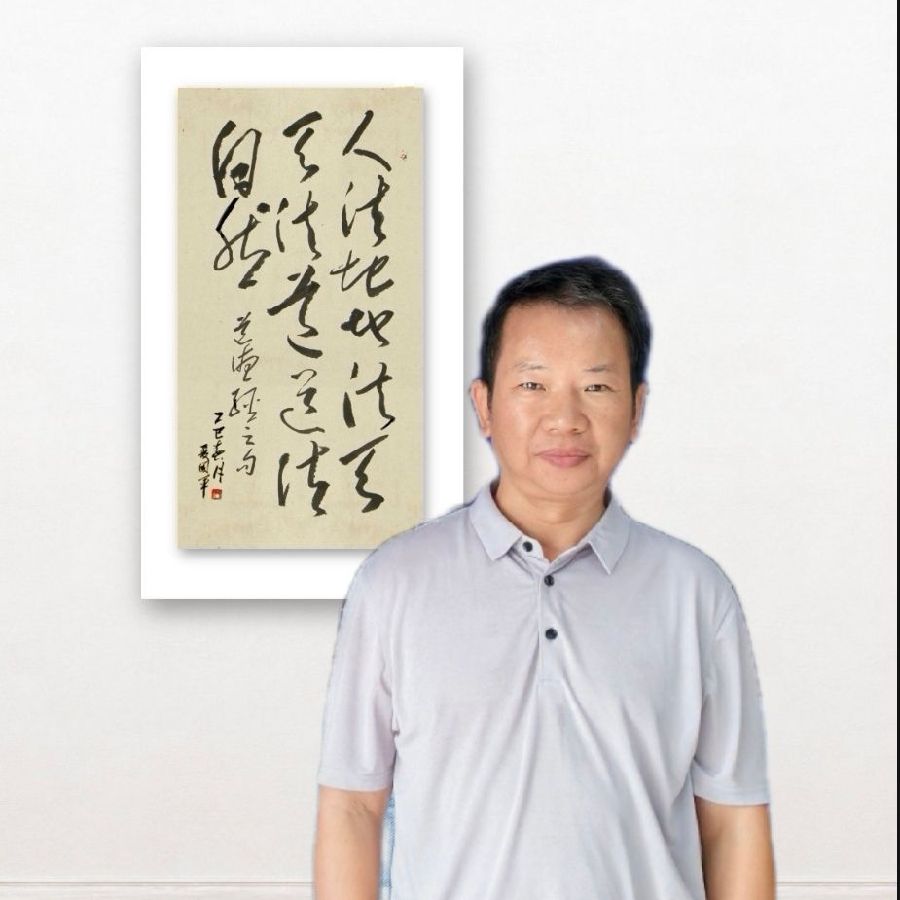 人法地地法天
天法道道法
自然
道德经之句
乙巳春月